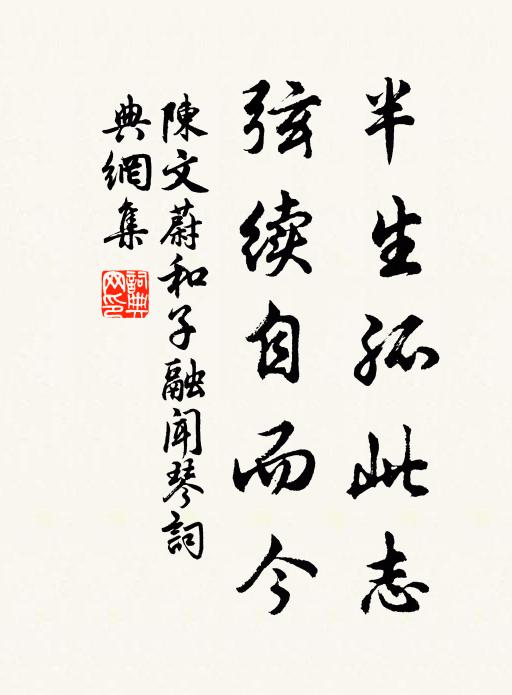 半生孤此志
弦续自而今
陳文蔚和子融闻琴詞
典網集
詞典
网印